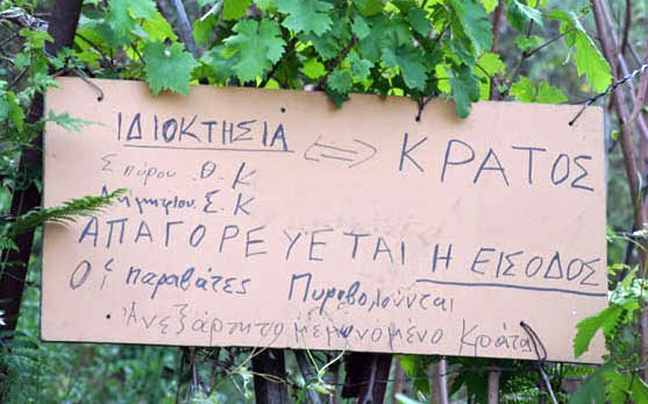 ΙΔΙΟΚΤΗΣΙΑ ⇔ ΚΡΑΤΟΣ
Σπύρου Θ.Κ
Δημητρίου Σ.Κ
ΑΠΑΓΟΡΕΥΕΤΑΙ Η ΕΙΣΟΔΟΣ
Οἱ παραβάτες Πυροβολούνται
Ἀνεξάρτητο μεμονομένο Κράτος